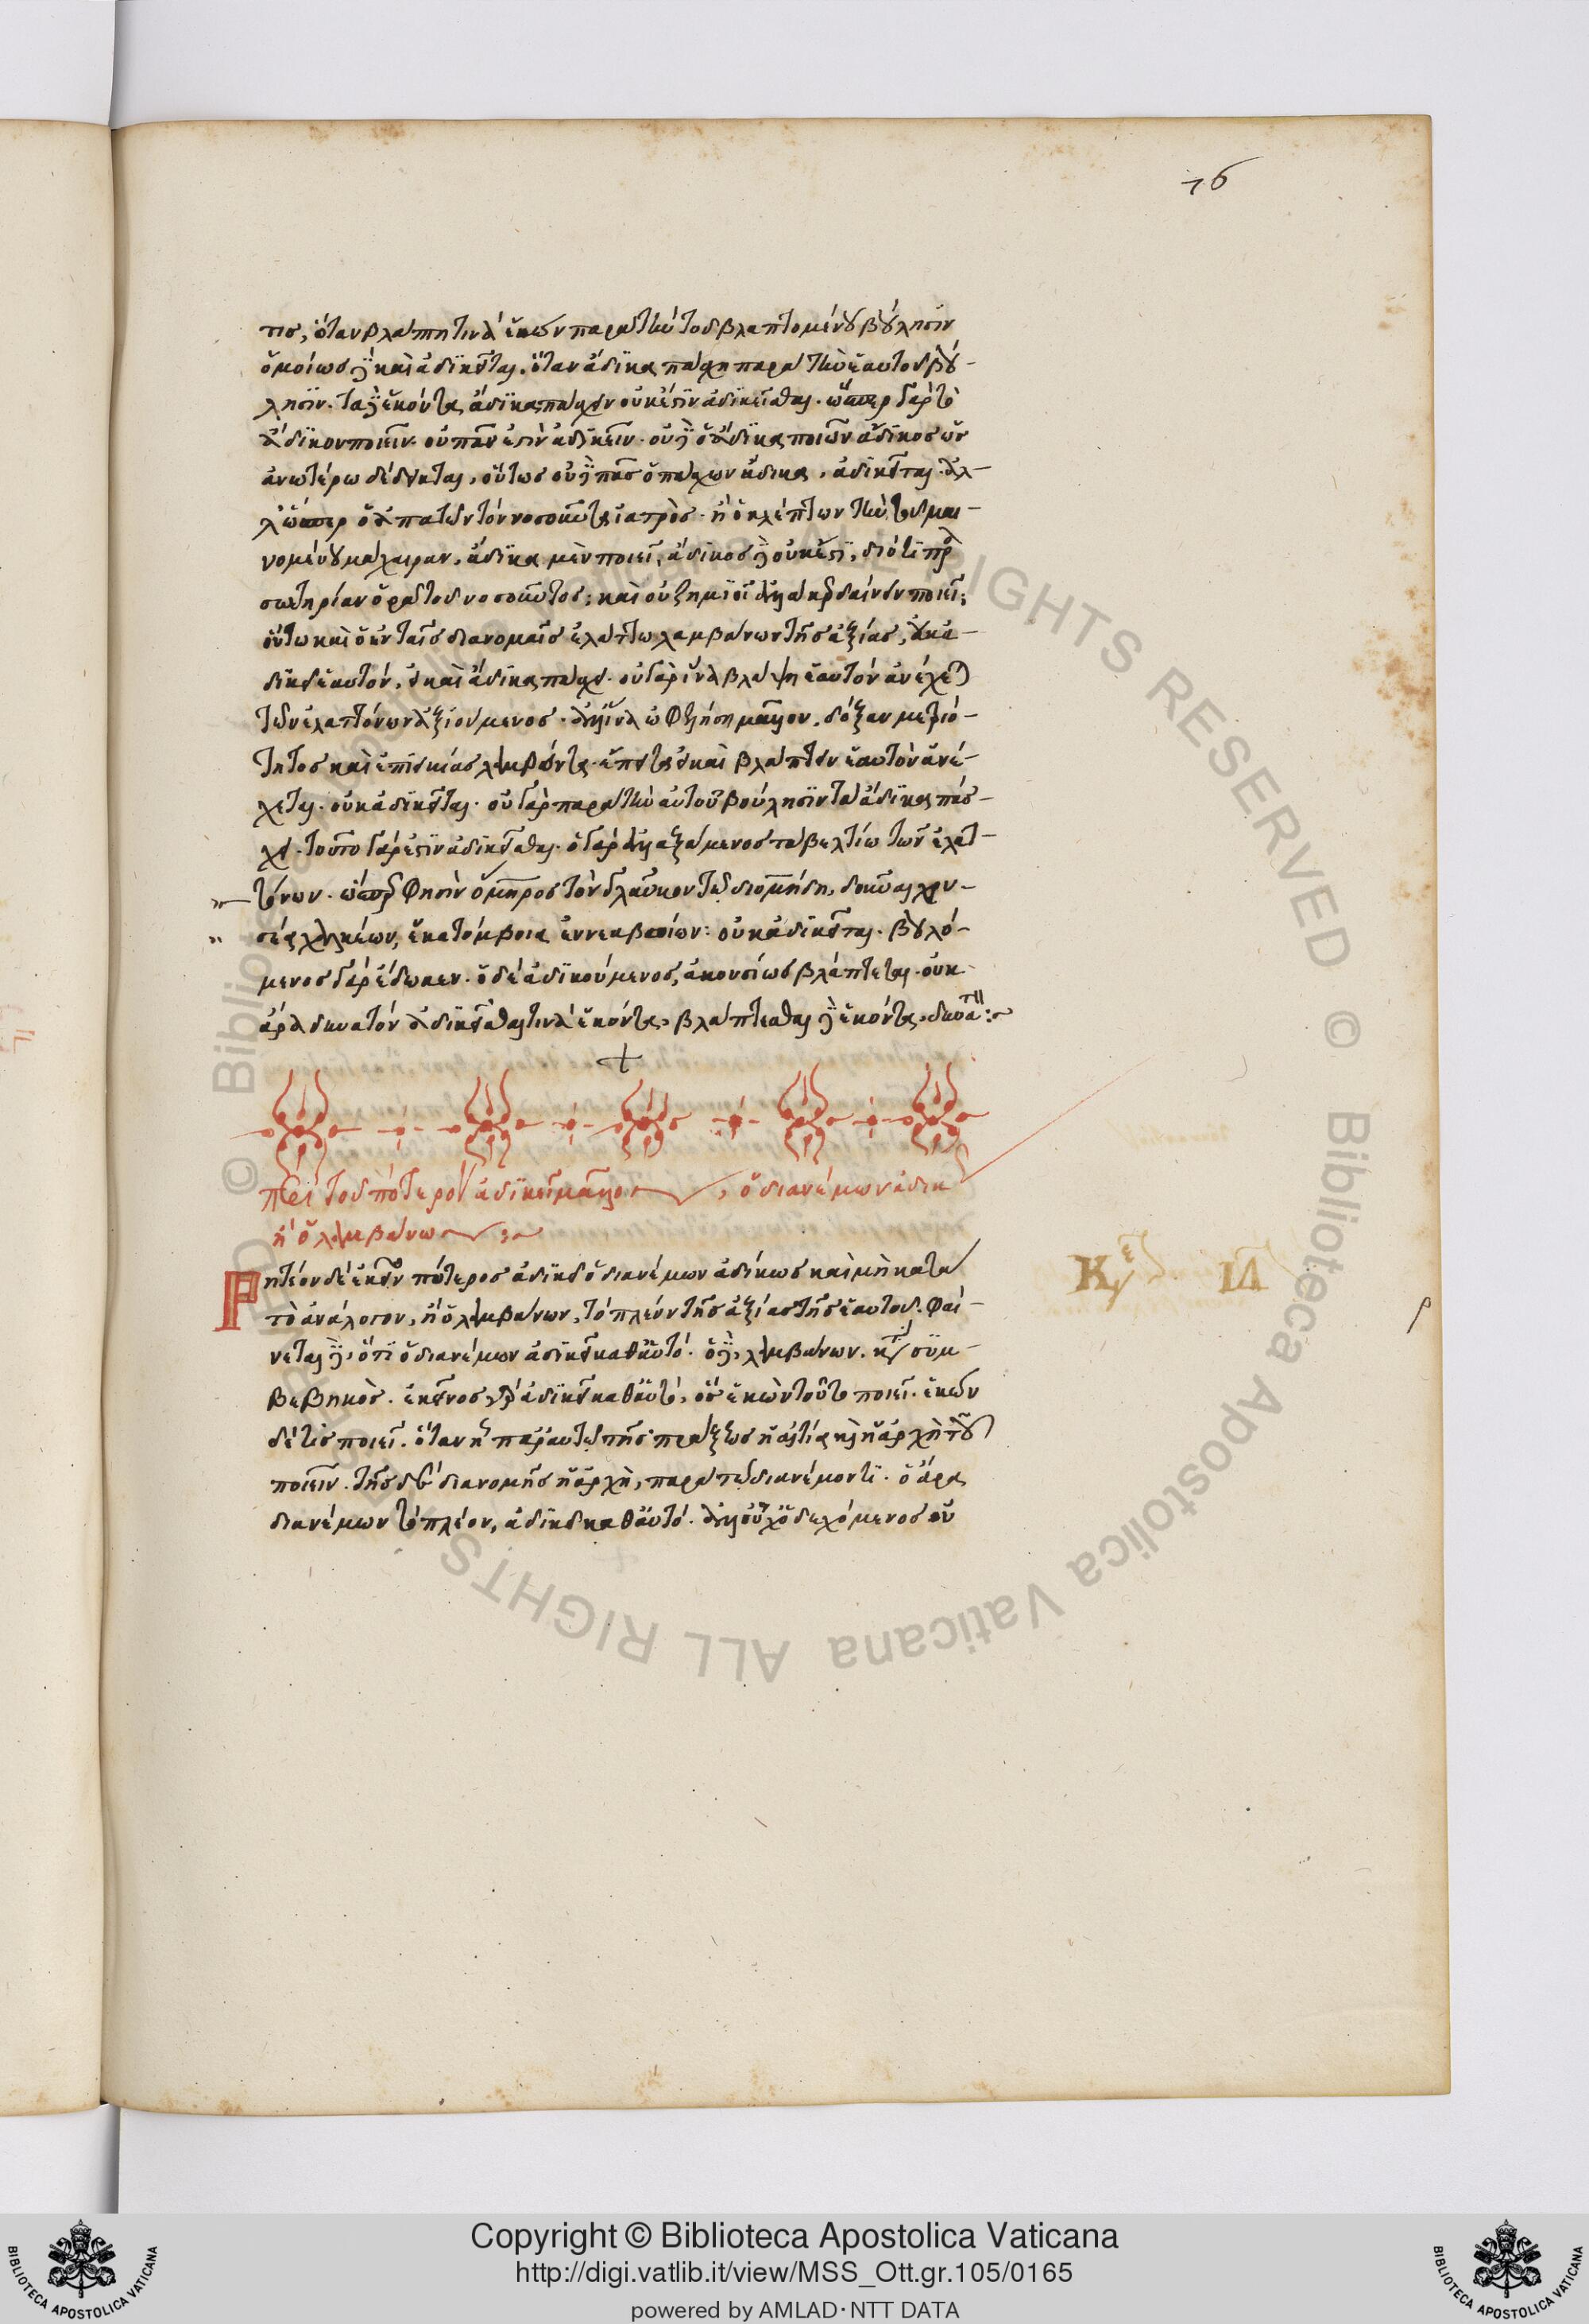 76
τις, ὅταν βλάπτῃ τινὰ ἑκὼν παρὰ τὴν τοῦ βλαπτομένου βούλησιν
ὁμοίως δὲ καὶ ἀδικεῖται. ὅταν ἄδικα πάσχῃ παρὰ τὴν ἑαυτοῦ βού-
λησιν. τὰ δὲ ἑκόντα ἄδικα πάσχειν οὐκ ἔστιν ἀδικεῖσθαι. ὥσπερ γὰρ τὸ
ἄδικον ποιεῖν οὐ πᾶν ἐστὶν ἀδικεῖν. οὐδὲ ὁ ἄδικα ποιῶν ἄδικος ὡς
ἀνωτέρω δέδεικται, οὕτως οὐδὲ πᾶς ὁ πάσχων ἄδικα, ἀδικεῖται. ἀλ-
λ' ὥσπερ ὁ ἀπατῶν τὸν νοσοῦντα ἰατρὸς. ἢ ὁ κλέπτων τὴν τοῦ μαι-
νομένου μάχαιραν, ἄδικα μὲν ποιεῖ, ἄδικος δὲ οὐκ ἔστι, διότι πρὸς
σωτηρίαν ὁρᾷ τοῦ νοσοῦντος; καὶ οὐ ζημιοῖ ἀλλὰ κερδαίνειν ποιεῖ;
οὕτω καὶ ὁ ἐν ταῖς διανομαῖς ἐλάττω λαμβάνων τῆς ἀξίας, οὐκ ἀ-
δικεῖ ἑαυτόν, εἰ καὶ ἄδικα πάσχει. οὐ γὰρ ἵνα βλάψῃ ἑαυτὸν ἀνέχεται
τῶν ἐλαττόνων ἀξιούμενος. ἀλλ' ἵνα ὠφελήσῃ μᾶλλον, δόξαν μετριό-
τητος καὶ ἐπιεικείας λαμβάνοντα. ἔπειτα εἰ καὶ βλάπτειν ἑαυτὸν ἀνέ-
χεται. οὐκ ἀδικεῖται. οὐ γὰρ παρὰ τὴν αὑτοῦ βούλησιν τὰ ἄδικα πάσ-
χει. τοῦτο γάρ ἐστιν ἀδικεῖσθαι. ὁ γὰρ ἀλλαξάμενος τὰ βελτίω τῶν ἐλατ-
τόνων. ὥσπερ φησὶν ὅμηρος τὸν γλαῦκον τῷ διομήδη, δοῦναι χρυ-
σέα χαλκείων, ἑκατόμβοια ἐννεαβοίων: οὐκ ἀδικεῖται. βουλό-
μενος γὰρ ἔδωκεν. ὁ δὲ ἀδικούμενος, ἀκουσίως βλάπτεται. οὐκ
ἄρα δυνατόν ἀδικεῖσθαί τινὰ ἑκόντα, βλάπτεσθαι δὲ ἑκόντα, δυνατόν:~
περὶ τοῦ πότερον ἀδικεῖ μᾶλλον, ὁ διανέμων ἄδικα
ἢ ὁ λαμβάνων:~
Ρητέον δὲ ἐκεῖνο πότερος ἀδικεῖ ὁ διανέμων ἀδίκως καὶ μὴ κατὰ
τὸ ἀνάλογον, ἢ ὁ λαμβάνων, τὸ πλέον τῆς ἀξίας τῆς ἑαυτοῦ. φαί-
νεται δὲ, ὅτι ὁ διανέμων ἀδικεῖ καθ' αὑτό. ὁ δὲ λαμβάνων. κατὰ συμ-
βεβηκὸς. ἐκεῖνος γὰρ ἀδικεῖ καθ' αὑτό, ὃς ἑκὼν τοῦτο ποιεῖ. ἑκὼν
δέ τις ποιεῖ. ὅταν ᾖ παρ' αὐτῷ τῆς πράξεως ἡ αἰτία καὶ ἡ ἀρχὴ τοῦ
ποιεῖν. τῆς δὲ διανομῆς ἡ ἀρχὴ, παρὰ τῷ διανέμοντι. ὁ ἄρα
διανέμων τὸ πλέον, ἀδικεῖ καθ' αὑτό. ἀλλ' οὐχ ὁ δεχόμενος οὐ
Κε ΙΔ
© Biblioteca Apostolica Vaticana ALL RIGHTS RESERVED
Copyright © Biblioteca Apostolica Vaticana
http://digi.vatlib.it/view/MSS_Ott.gr.105/0165
powered by AMLAD·NTT DATA
BIBLIOTECA APOSTOLICA VATICANA
BIBLIOTECA APOSTOLICA VATICANA